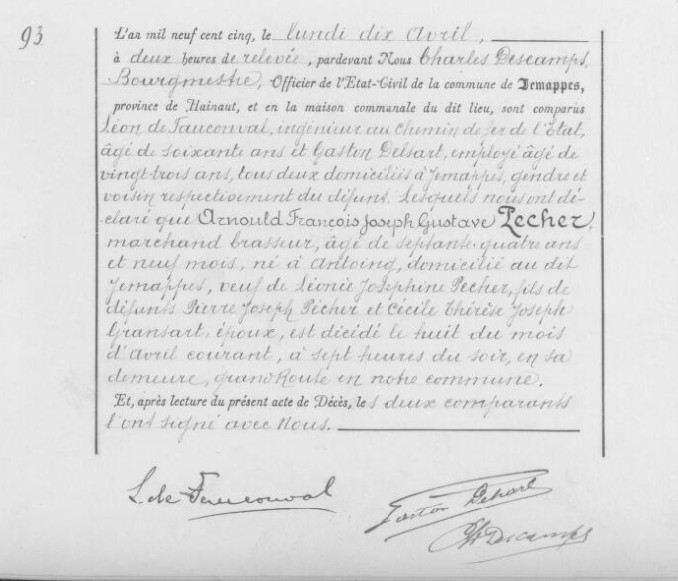 93.
L'an mil neuf cent cinq, le lundi dix Avril,
à deux heures de relevée, pardevant Nous Charles Descamps,
Bourgmestre, Officier de l'Etat-Civil de la commune de Jemappes,
province de Hainaut, et en la maison communale du dit lieu, sont comparus
Léon de Fauconval, ingénieur au chemin de fer de l'Etat,
âgé de soixante ans et Gaston Delsart, employé âgé de
vingt-trois ans, tous deux domiciliés à Jemappes, gendre et
voisin respectivement du défunt. Lesquels nous ont dé-
claré que Arnould François Joseph Gustave Pecher,
marchand brasseur, âgé de septante-quatre ans
et neuf mois, né à Antoing, domicilié au dit
Jemappes, veuf de Léonie Joséphine Pecher, fils de
défunts Pierre Joseph Pecher et Cécile Thérèse Joseph
Gransart, époux, est décédé le huit du mois
d'avril courant, à sept heures du soir, en sa
demeure, grand Route en notre commune.
Et, après lecture du présent acte de Décès, les deux comparants
l'ont signé avec Nous.
L de Fauconval
Gaston Delsart
Ch Descamps